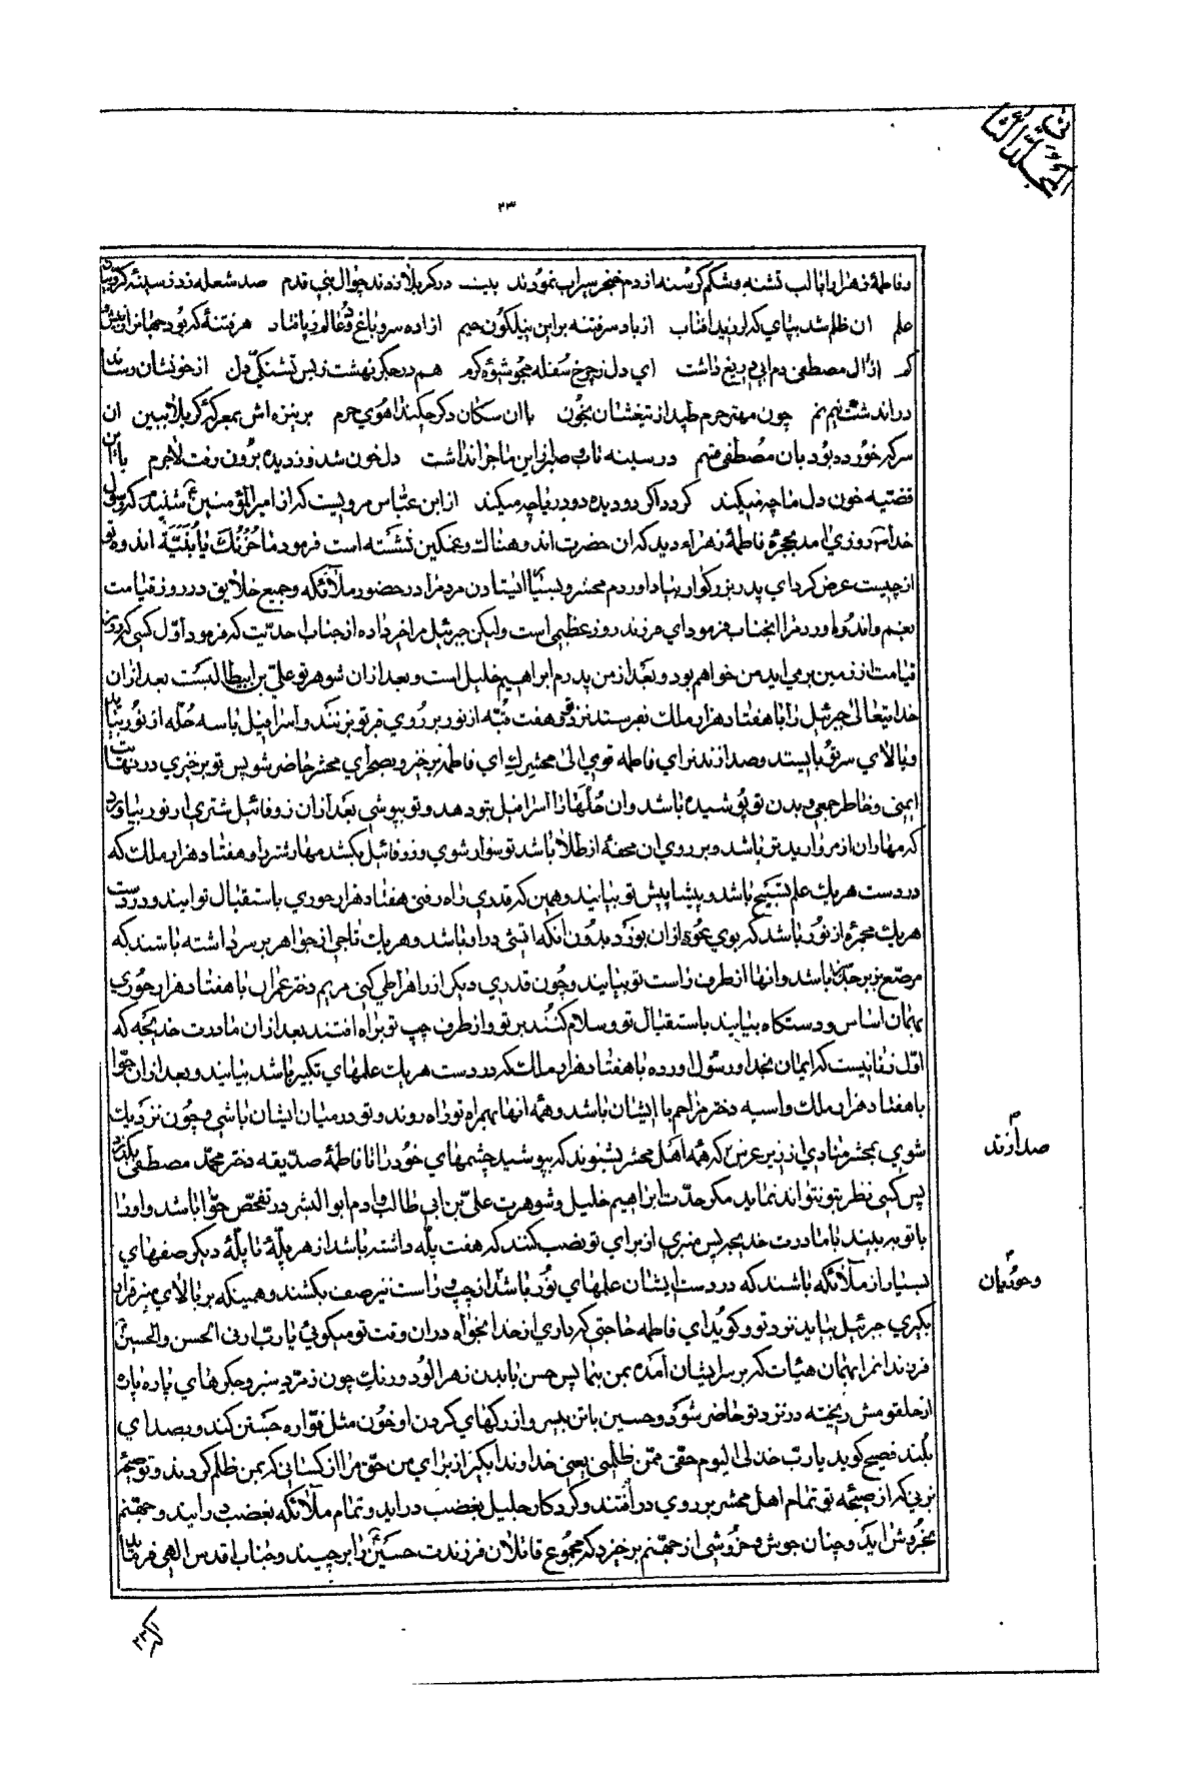 المجلد الثاني
۲۳
و فاطمهٔ زهرا را با لب تشنه و شکم گرسنه از دم خنجر سیراب نمودند بیت در کربلا زدند چو آل نبی قدم صد شعله زد ز سینهٔ کروبیان
علم آن ظلم شد بپای که لرزید افتاب از باد سر فتنه بر این نیلگون خیم از اده سرو باغ دو عالم ز پا فتاد هر فتنهٔ که بود جهانرا
که از آل مصطفی دم ابی دریغ داشت ای دل ز چرخ سفله مجو شیوهٔ کرم هم در جگر نهشت ز بس تشنگی دل از خونشان رساند
در اندشت نیم نم چون مهتر حرم طپد از تیغشان بخون با ان سکان دکر چکند اهوی حرم بر نیزه اش بمعرکهٔ کربلا ببین ان
سر که خورده بود بان مصطفی قسم در سینه تاب صابر این ماجرا نداشت دل خون شد و ز دیده برون رفت لاجرم با این
قضیه خون دل ما چه میکند کرد اگر دو دیده دو دریا چه میکند از ابن عباس مرویست که از امیر المؤمنین شنیدم که رسول
خدا روزی امد بحجرهٔ فاطمهٔ زهرا دید که ان حضرت اندوهناک و غمکین نشسته است فرمود ما حزنک یا بنیة اندوه تو
از چیست عرض کرد ای پدر بزرکوار بیاد اوردم محشر و ایستادن مردم را در حضور ملائکه و جمیع خلایق در روز قیامت
بغم و اندوه اورد مرا انجناب فرمود ای فرزند روز عظیمی است ولیکن جبرئیل مرا خبر داده از جناب احدیت که فرمود اول کسی که روز
قیامت از زمین بر می اید من خواهم بود و بعد از من پدرم ابراهیم خلیل است و بعد از ان شوهر تو علی بن ابیطالبست بعد از ان
خدایتعالی جبرئیل را با هفتاد هزار ملک بفرستد نزد تو هفت قبه از نور بر روی قبر تو بزنند و اسرافیل با سه حله از نور بیاید
و بالای سر تو بایستد و صدا زند ترا ای فاطمه قومی الی محشرک ای فاطمه برخیز و بصحرای محشر حاضر شو پس تو برخیزی در نهایت
ایمنی و خاطر جمعی و بدن تو پوشیده باشد و ان حلها را اسرافیل بتو دهد و تو بپوشی بعد از ان زوفائیل شتری از نور بیاورد
که مهار ان از مروارید تر باشد و بر روی ان محفهٔ از طلا باشد تو سوار شوی و زوفائیل بکشد مهار شتر را و هفتاد هزار ملک که
در دست هر یک علم تسبیح باشد و پیشاپیش تو بیایند و همین که قدری راه رفتی هفتاد هزار حوری باستقبال تو ایند و در دست
هر یک مجمرهٔ از نور باشد که بوی عود از ان بوزد بدون انکه اتشی در او باشد و هر یک تاجی از جواهر بر سر داشته باشند که
مرصع بزبرجد باشد و انها از طرف راست تو بیایند و چون قدری دیکر از راه را طی کنی مریم دختر عمران با هفتاد هزار حوری
بهمان اساس و دستکاه بیایند باستقبال تو و سلام کنند بر تو و از طرف چپ تو براه افتند بعد از ان مادرت خدیجه که
اول زنانیست که ایمان بخدا و رسول اورده با هفتاد هزار ملک که در دست هر یک علمهای تکبیر باشد بیایند و بعد از ان حوا
با هفتاد هزار ملک و اسیه دختر مزاحم با ایشان باشد و همه انها بهمراه تو راه روند و تو در میان ایشان باشی و چون نزدیک
شوی بمحشر منادی از زیر عرش که همه اهل محشر بشنوند که بپوشید چشمهای خود را تا فاطمهٔ صدیقه دختر محمد مصطفی بگذرد
پس کسی نظر بتو نتواند نماید مکر جدت ابراهیم خلیل و شوهرت علی بن ابی طالب و ادم ابو البشر در تفحص حوا باشد و او را
با تو به بیند با مادرت خدیجه پس منبری از برای تو نصب کنند که هفت پله داشته باشد از هر پلهٔ تا پلهٔ دیکر صفهای
بسیار از ملائکه باشند که در دست ایشان علمهای نور باشد از چپ و راست نیز صف بکشند و همینکه بر بالای منبر قرار
بکیری جبرئیل بیاید نزد تو و کوید ای فاطمه حاجتی که داری از خدا بخواه در ان وقت تو میکوئی یا رب ارنی الحسن و الحسین
فرزندانمرا بهمان هیأت که بر سر ایشان امده بمن بنما پس حسن با بدن زهر الود و رنک چون زمرد سبز و جکرهای پاره پاره
از حلقومش ریخته در نزد تو حاضر شود و حسین با تن بیسر و از رکهای کردن او خون مثل فواره جستن کند و بصدای
بلند فصیح کوید یا رب خذ لی الیوم حقی ممن ظلمنی یعنی خداوندا بکیر از برای من حق مرا از کسانی که بمن ظلم کردند و تو صیحهٔ
بزنی که از صیحه تو تمام اهل محشر بر روی در افتند و کردکار جلیل بغضب در اید و تمام ملائکه بغضب در ایند و جهنم
بخروش اید و چنان جوش و خروشی از جهنم برخیزد که مجموع قاتلان فرزندت حسین را بر چیند و جناب اقدس الهی فرماید
صدا زند
و حوریان